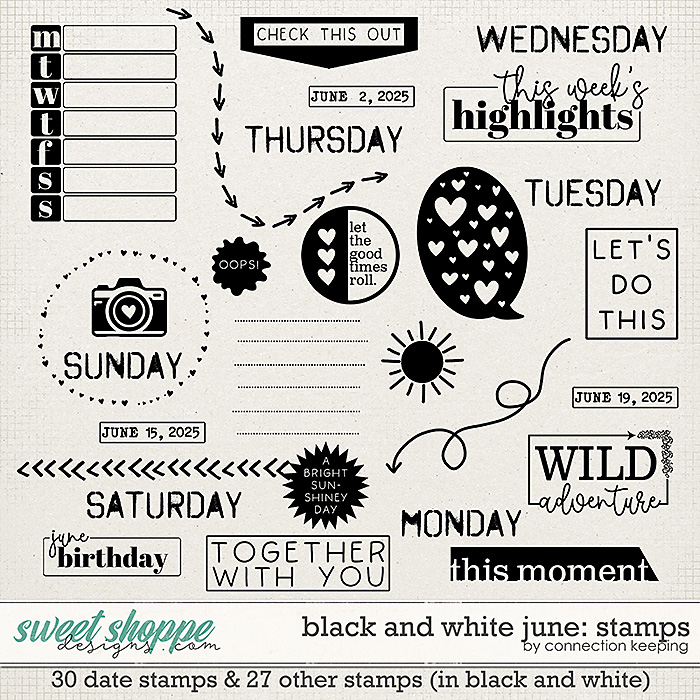 m
t
w
t
f
s
s
CHECK THIS OUT
WEDNESDAY
this week's
highlights
JUNE 2, 2025
THURSDAY
TUESDAY
OOPS!
let
the
good
times
roll.
LET'S
DO
THIS
SUNDAY
JUNE 15, 2025
JUNE 19, 2025
A
BRIGHT
SUN-
SHINEY
DAY
WILD
adventure
SATURDAY
MONDAY
june
birthday
TOGETHER
WITH YOU
this moment
sweet shoppe
designs.com
black and white june: stamps
by connection keeping
30 date stamps & 27 other stamps (in black and white)